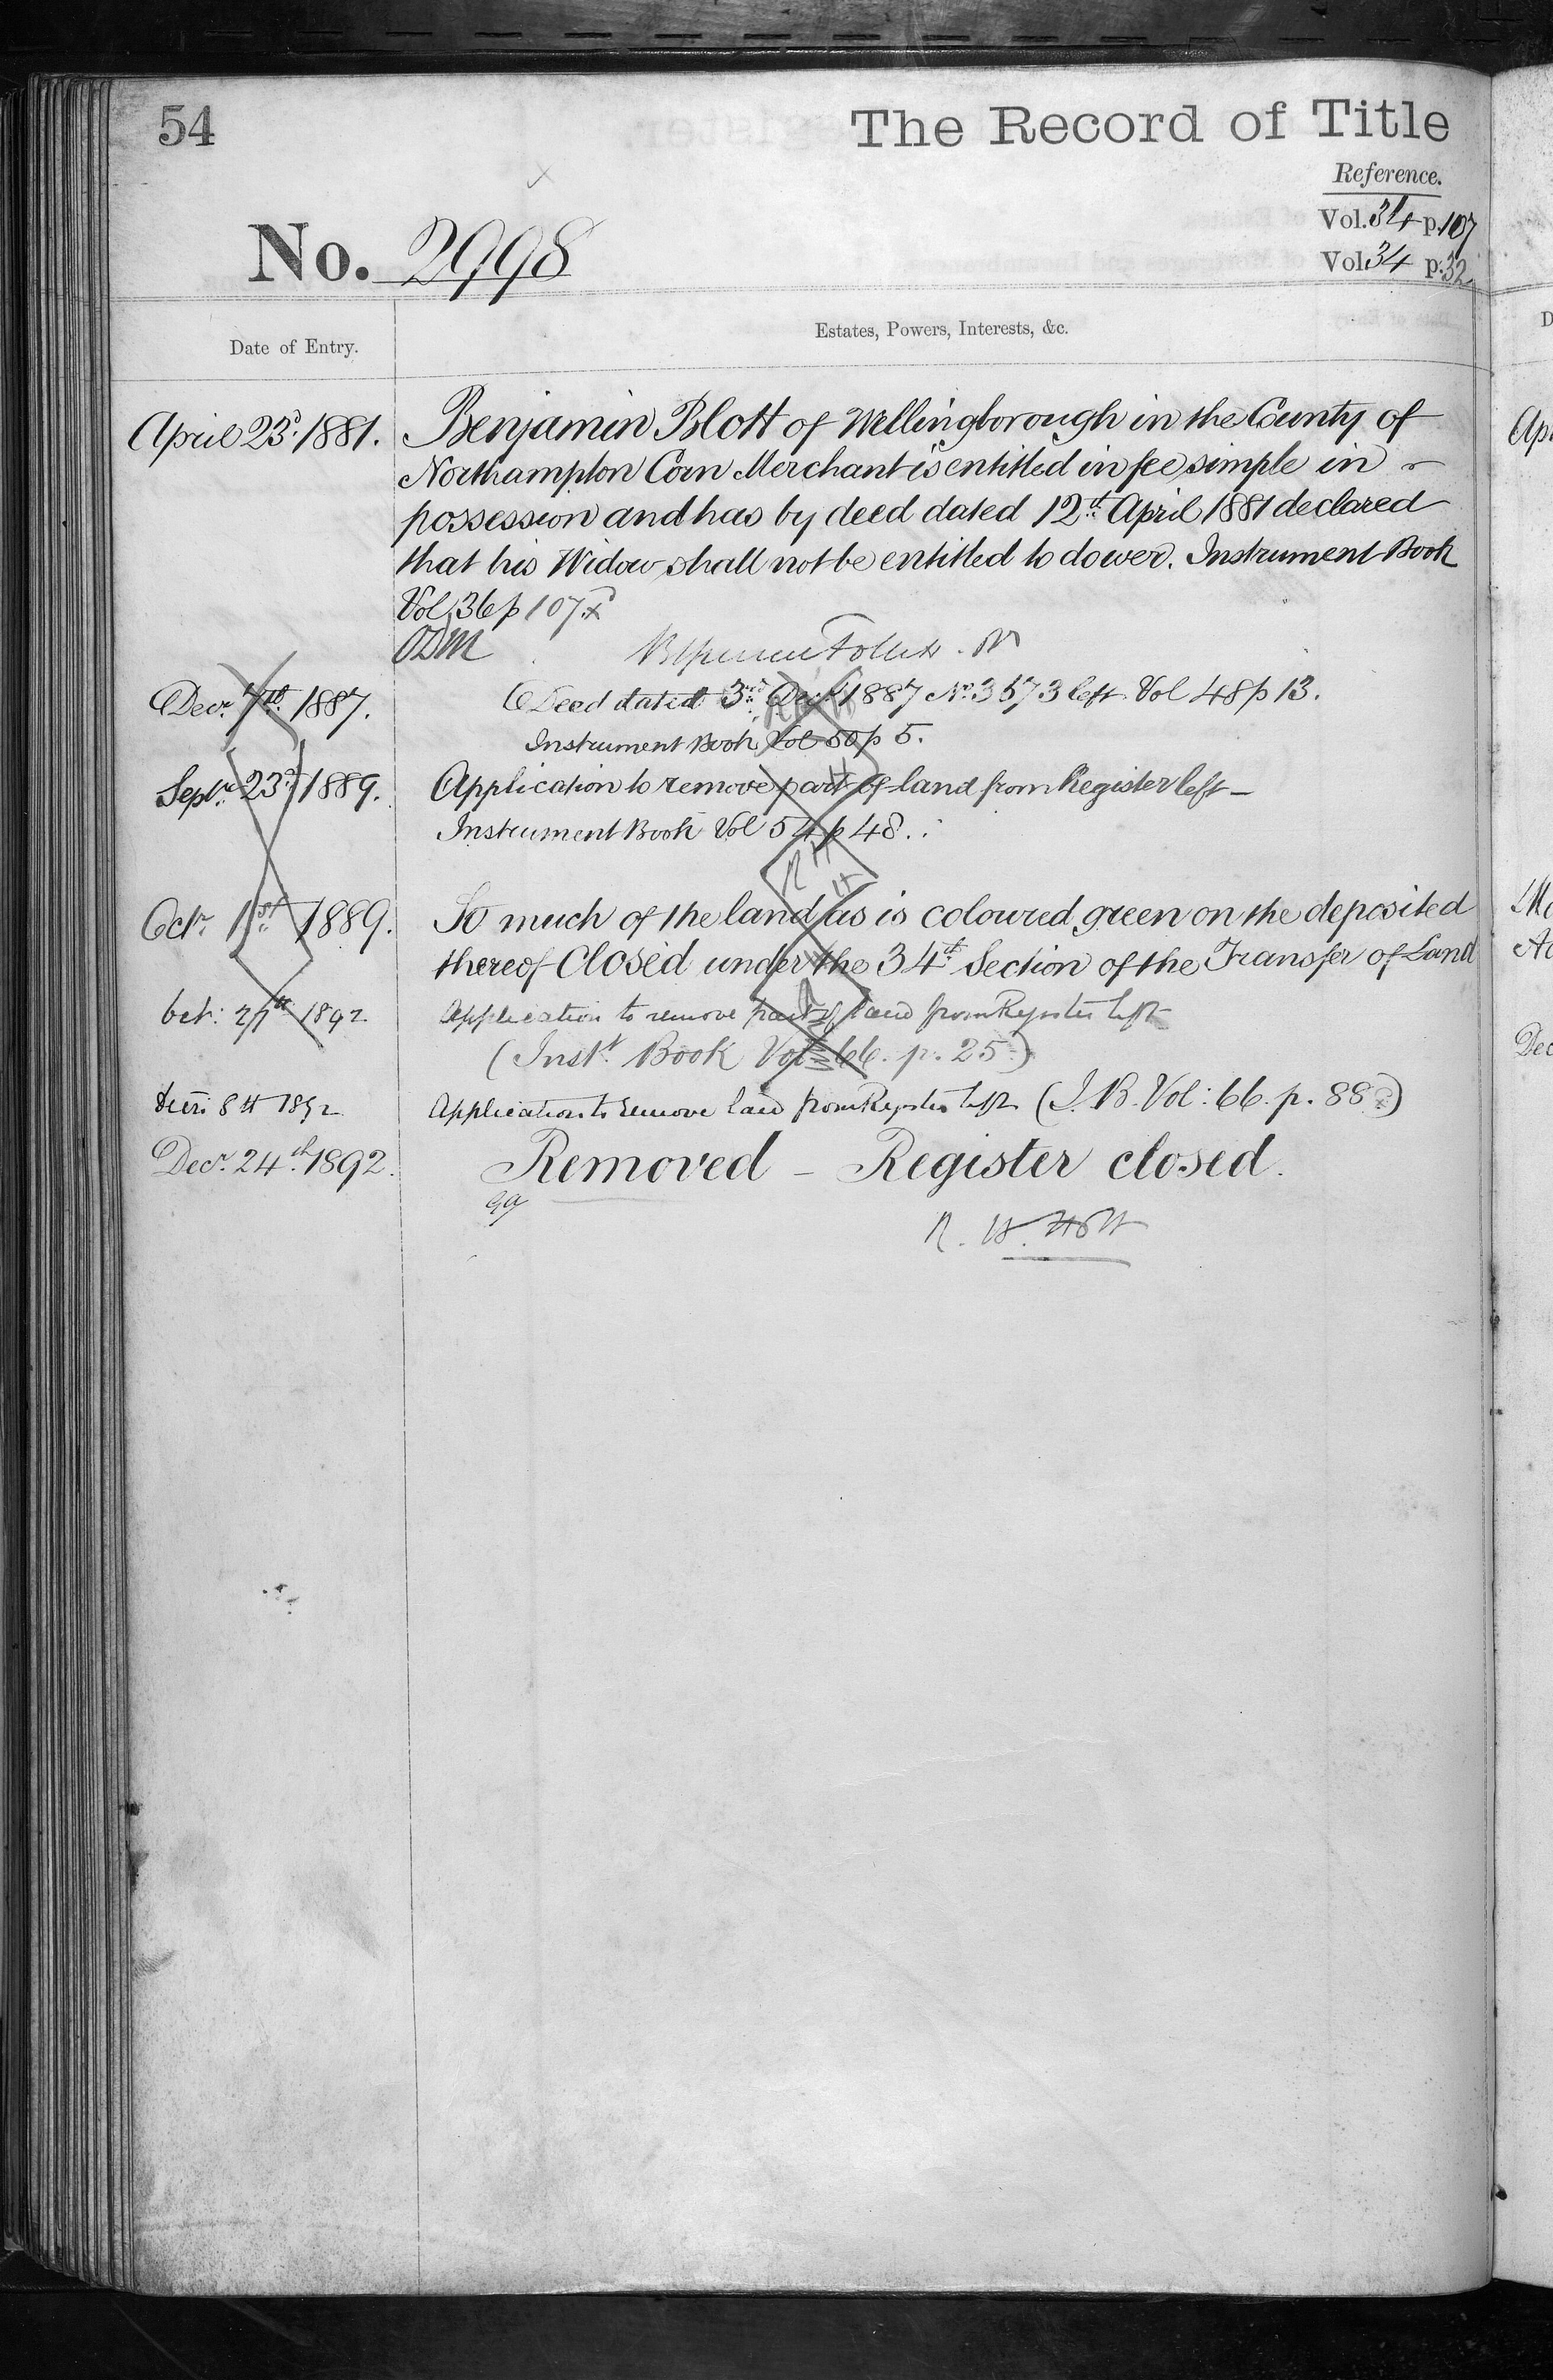 54
The Record of Title
Reference.
Vol. 34 p. 107
Vol. 34 p. 32
No. 2998
Date of Entry.
Estates, Powers, Interests, &c.
April 23d. 1881. Benjamin Blott of Wellingborough in the County of
Northampton Corn Merchant is entitled in fee simple in
possession and has by deed dated 12th April 1881 declared
that his Widow shall not be entitled to dower. Instrument Book
Vol 36 p 107.
Decr. 7th 1887. Deed dated 3rd Decr 1887 No. 3573 left Vol 48 p 13.
Instrument Book Vol 50 p 5.
Septr. 23d. 1889. Application to remove part of land from Register left —
Instrument Book Vol 54 p 48.
Octr. 1st 1889. So much of the land as is coloured green on the deposited
thereof Closed under the 34th Section of the Transfer of Land
Oct: 27th 1892 Application to remove part of land from Register left
(Inst. Book Vol 66. p. 25.)
8th 1892 Application to remove land from Register left (I. B. Vol: 66. p. 88)
Decr. 24th 1892. Removed – Register closed.
R. H. Holt
Ap
Dec